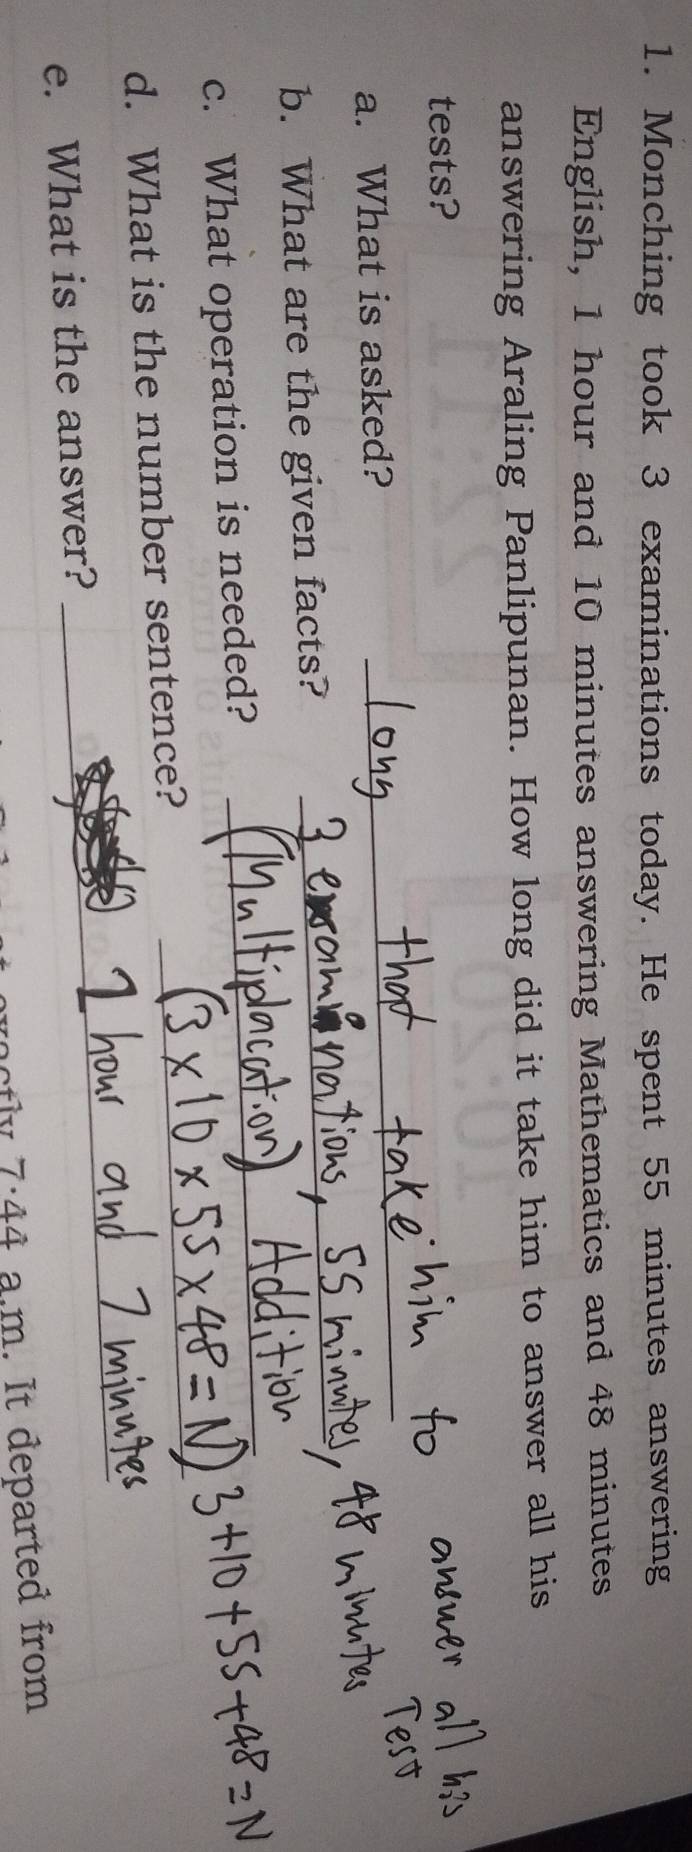 1. Monching took 3 examinations today. He spent 55 minutes answering
English, 1 hour and 10 minutes answering Mathematics and 48 minutes
answering Araling Panlipunan. How long did it take him to answer all his
tests?
a. What is asked? long that take him to answer all his
Test
b. What are the given facts? 3 examinations, 55 minutes, 48 minutes
c. What operation is needed? (Multiplacation) Addition
d. What is the number sentence? (3 x 10 x 55 x 48 = N) 3+10+55+48=N
e. What is the answer? 1 hour and 7 minutes
exactly 7:44 a.m. It departed from